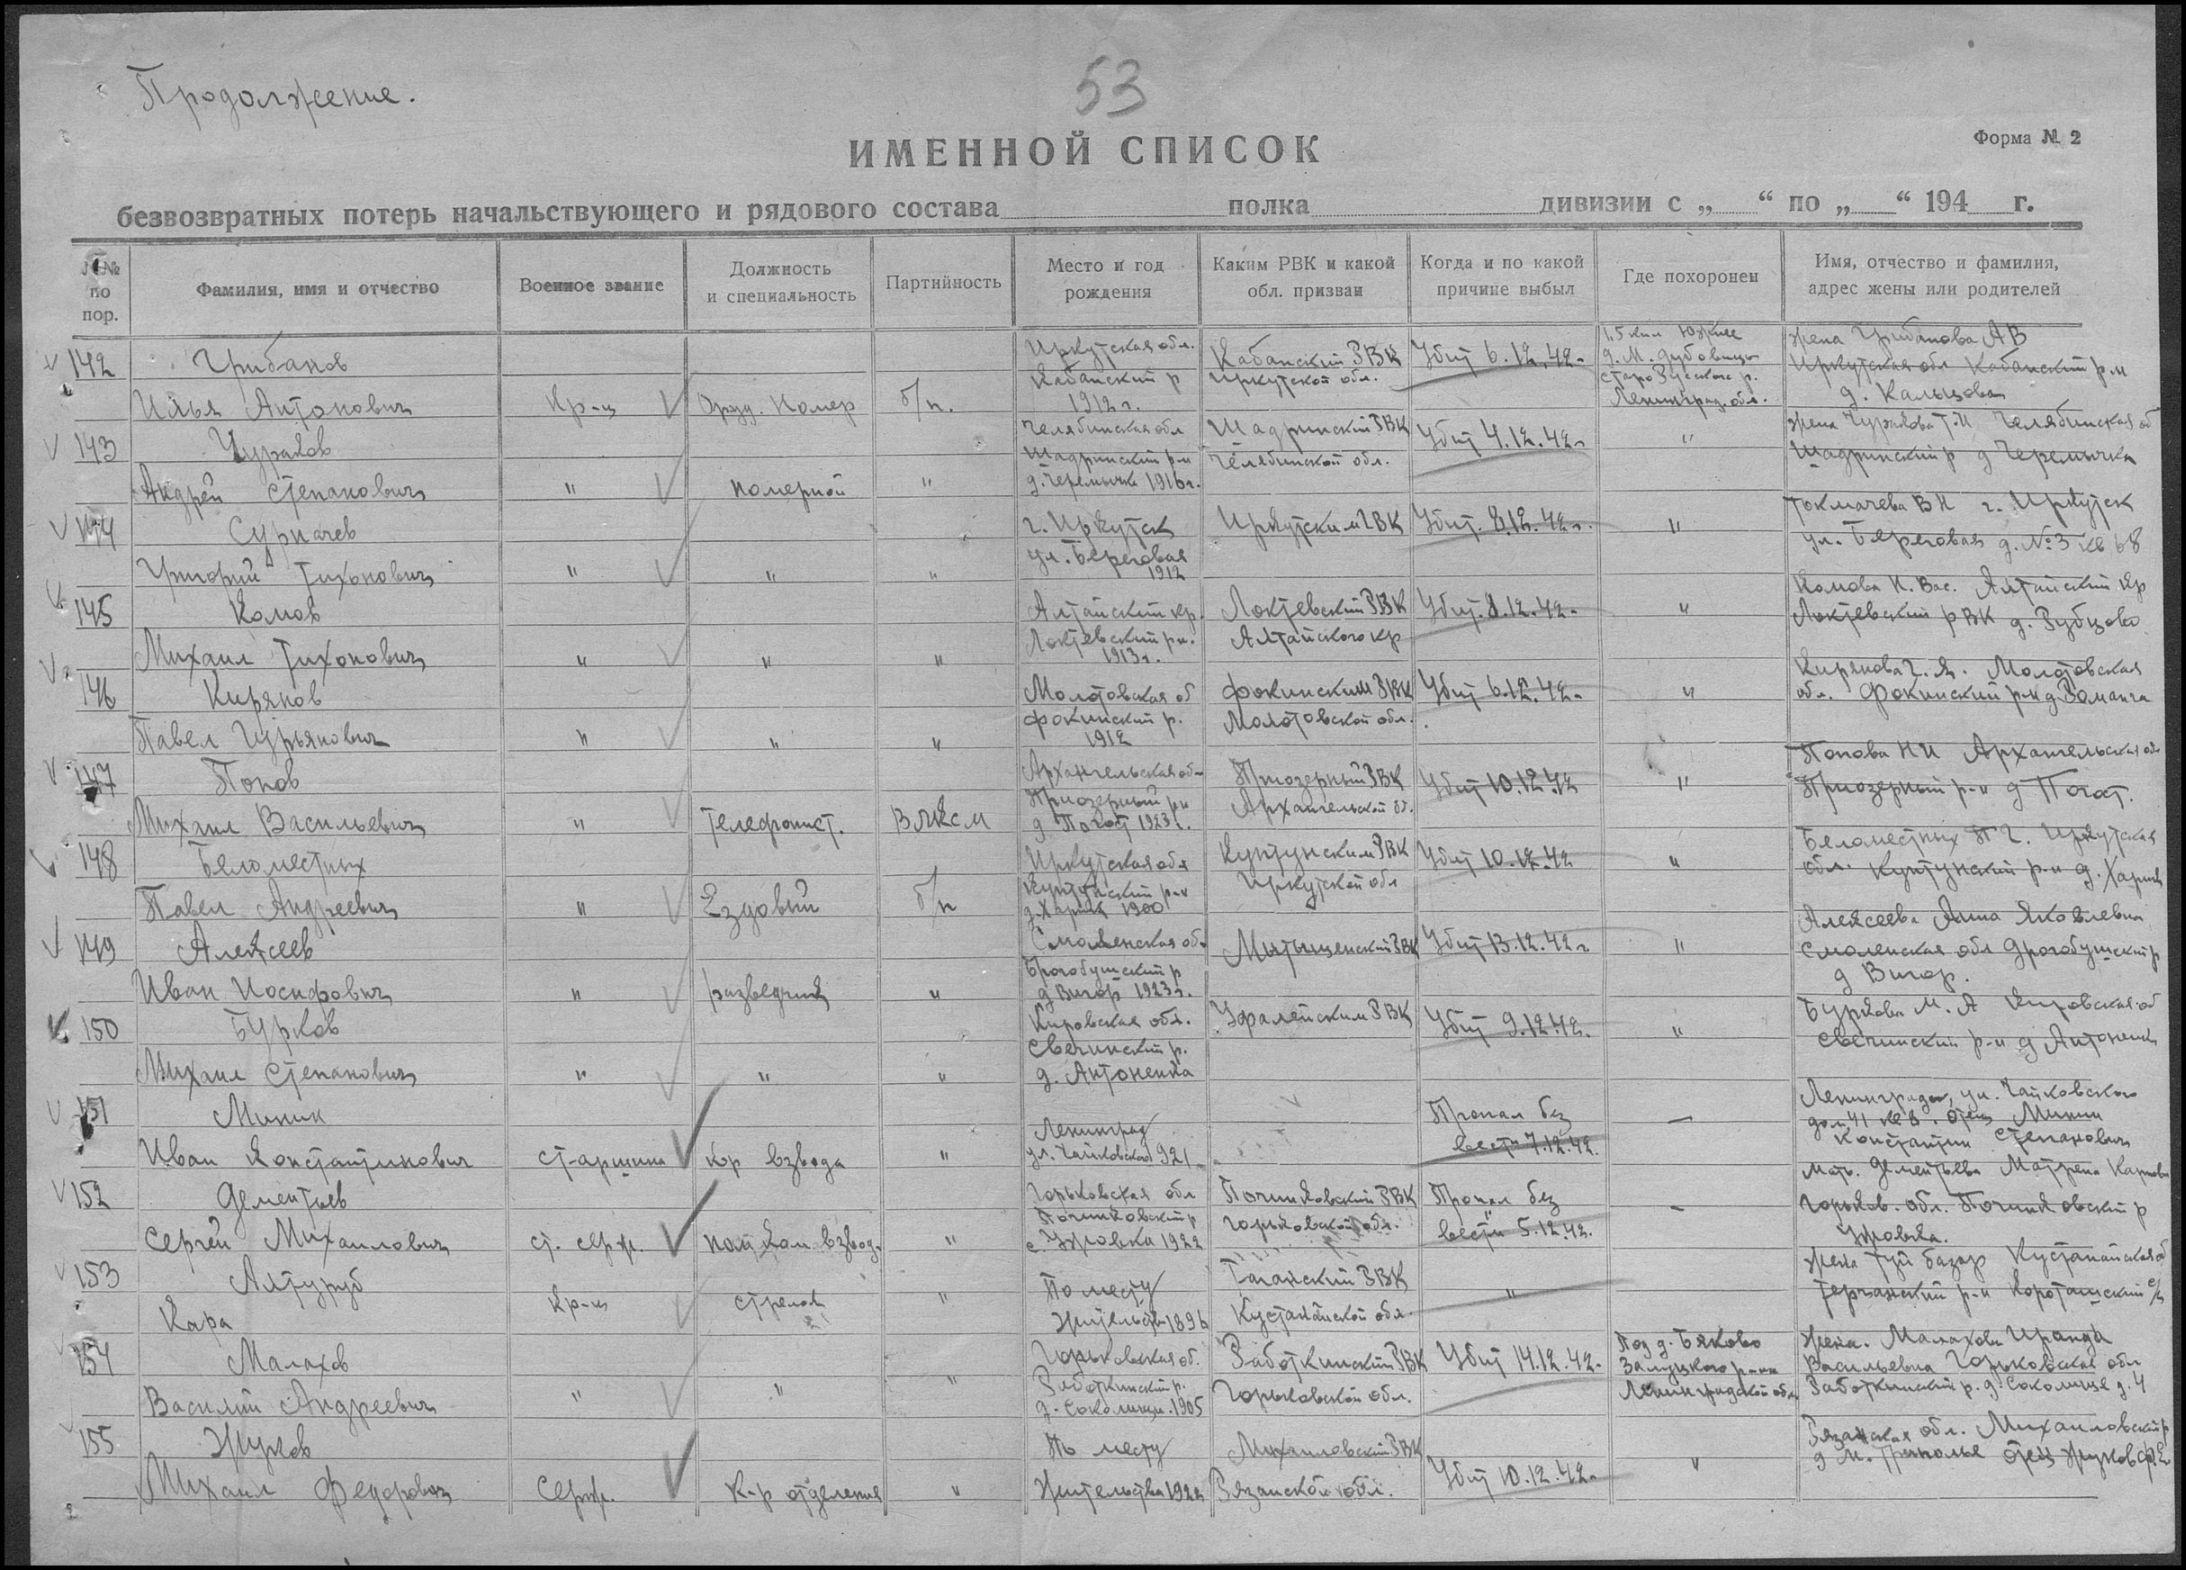 Продолжение.
53
Форма № 2
ИМЕННОЙ СПИСОК
безвозвратных потерь начальствующего и рядового состава полка дивизии с „ “ по „ “ 194 г.
№№ по пор.
Фамилия, имя и отчество
Военное звание
Должность и специальность
Партийность
Место и год рождения
Каким РВК и какой обл. призван
Когда и по какой причине выбыл
Где похоронен
Имя, отчество и фамилия, адрес жены или родителей
142 Грибанов Иркутская обл. Кабанский РВК Убит 6.12.42. 1,5 клм Южнее жена Грибанова А В
Илья Антонович Кр-ц Оруд. номер б/п. Кабанский р Иркутской обл. д. М. Дубовицы Иркутская обл Кабанский р-н
1912 г. Старо Русского р. д.
Ленинград. обл.
143 Чураков Челябинская обл Шадринский РВК Убит 4.12.42г " жена Чуракова Т.И Челябинская об
Андрей Степанович " номерной " Шадринский р-н Челябинской обл. Шадринский р д Черемычка
д. 1916г.
144 Сурначев г. Иркутск Иркутским ГВК Убит. 8.12.42г. " Токмачева В Н г. Иркутск
Григорий Тихонович " " " ул. Береговая ул. Береговая д. №3 кв 68
1912
145 Комов Алтайский кр. Локтевский РВК Убит. 8.12.42. " Комова К. Вас. Алтайский Кр
Михаил Тихонович " " " Локтевский р-н. Алтайского кр Локтевский р ВК д.
1913г.
146 Кирянов Молотовская об Фокинским РВК Убит 6.12.42. " Кирянова Молотовская
Павел Гурьянович " " " Фокинский р. Молотовской обл. обл. Фокинский р-н д
1912
147 Попов Архангельская об- Приозерный РВК Убит 10.12.42 " Попова Н И Архангельская обл
Михаил Васильевич " телефонист. ВЛКСМ Приозерный р-н Архангельской об. Приозерный р-н д Погост.
д Погост 1923г.
148 Беломестных Иркутская обл Куйтунским РВК Убит 10.12.42 " Беломестных Иркутская
Павел Андреевич " Ездовый б/п Куйтунский р-н Иркутской обл обл. Куйтунский р-н д. Харик
д. Харик 1900
149 Алексеев Смоленская обл Мытищенский РВК Убит 13.12.42г " Алексеева Анна Яковлевна
Иван Иосифович " разведчик " р Смоленская обл р
д Вигор 1923г. д Вигор.
150 Бурков Кировская обл. Уфалейским РВК Убит 9.12.42. " Буркова М. А Кировская об
Михаил Степанович " " " Свечинский р. Свечинский р-н д Антоненки
д. Антоненка
151 Минин Ленинград Пропал без — Ленинград, ул. Чайковского
Иван Константинович старшина к-р взвода " ул. Чайковского 1921 вести 7.12.42. дом 41 кв 8. отец Минин
Константин Степанович
152 Дементьев Горьковская обл Починковский РВК Пропал без — Мать. Дементьева Матрена
Сергей Михайлович ст. серж. пом ком взвод. " Починковский р Горьковской обл. вести 5.12.42. Горьков. обл. Починковский р
с. Ужовка 1922 Ужовка.
153 По месту РВК " жена Кустанайская об
Кара Кр-ц стрелок " жительств 1896 Кустанайской обл. р-н с/с
154 Малахов Горьковская об. Работкинский РВК Убит 14.12.42. Под д. Бяково жена. Малахова
Василий Андреевич " " " Работкинский р. Горьковской обл. Залуцкого р-на Васильевна Горьковская обл
д. 1905 Ленинградской обл Работкинский р. д. д. 4
155 Жуков По месту Михайловский РВК Убит 10.12.42. " Рязанская обл. Михайловский р
Михаил Федорович Серж. К-р отделения " жительства 1922 Рязанской обл. отец Жуков